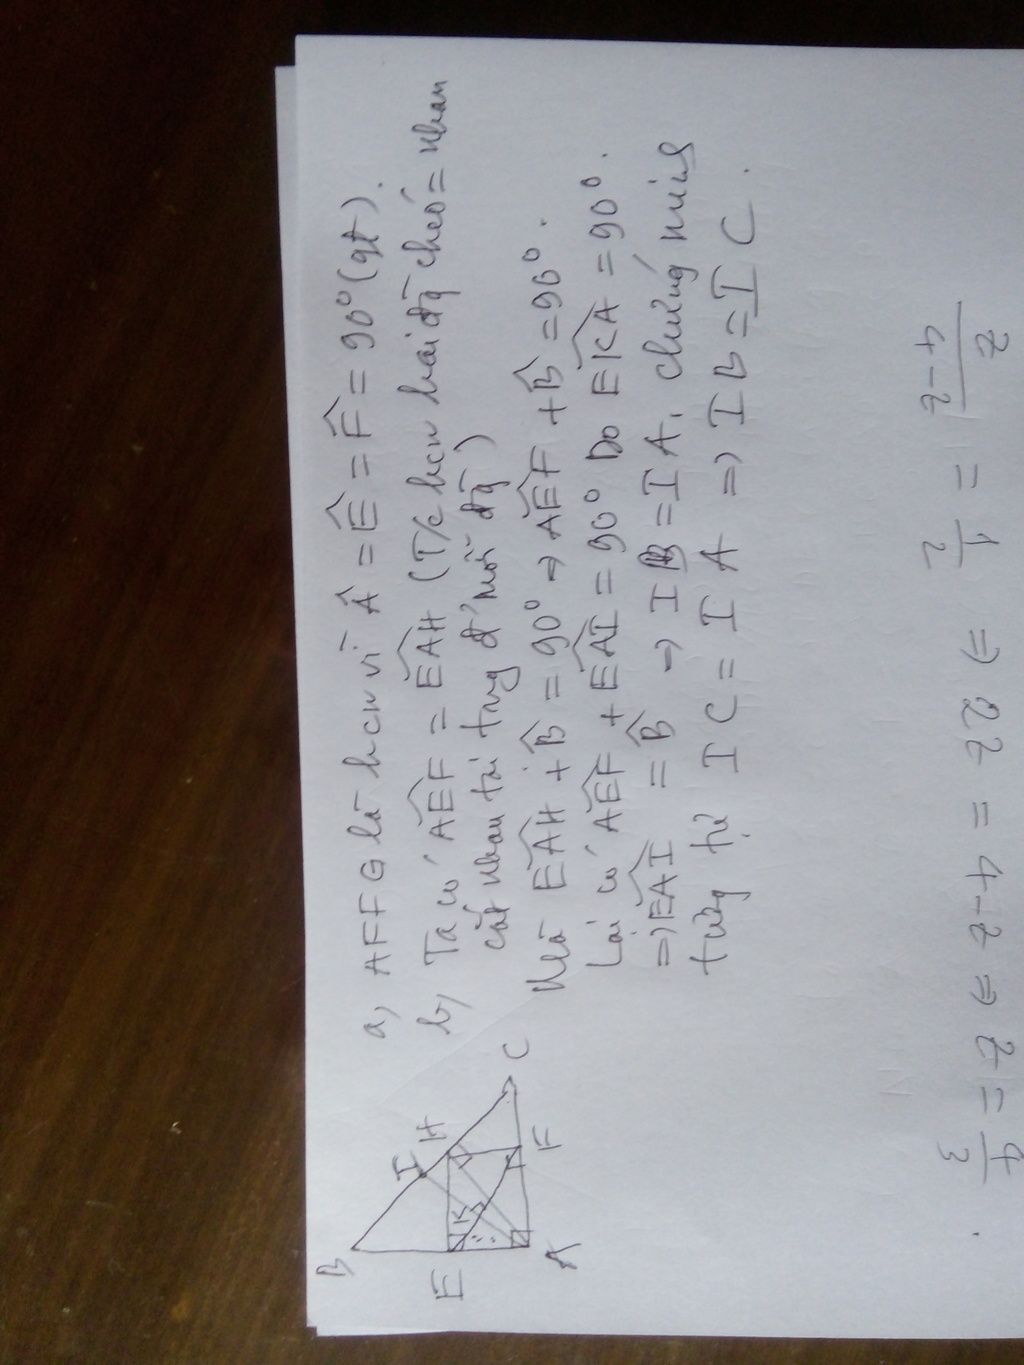 a, AFFG là hcn vì Â = Ê = F̂ = 90° (gt).
b, Ta có AÊF = EÂH (T/c hcn hai đg chéo = nhau
cắt nhau tại trung đ' mỗi đg)
Mà EÂH + B̂ = 90° → AÊF + B̂ = 90°.
Lại có AÊF + EÂI = 90° Do EK̂A = 90°.
⇒ EÂI = B̂ → IB = IA, chứng minh
tương tự IC = IA ⇒ IB = IC.
B
I
H
C
K
E
A
F
z/(4-z) = 1/2 ⇒ 2z = 4-z ⇒ z = 4/3